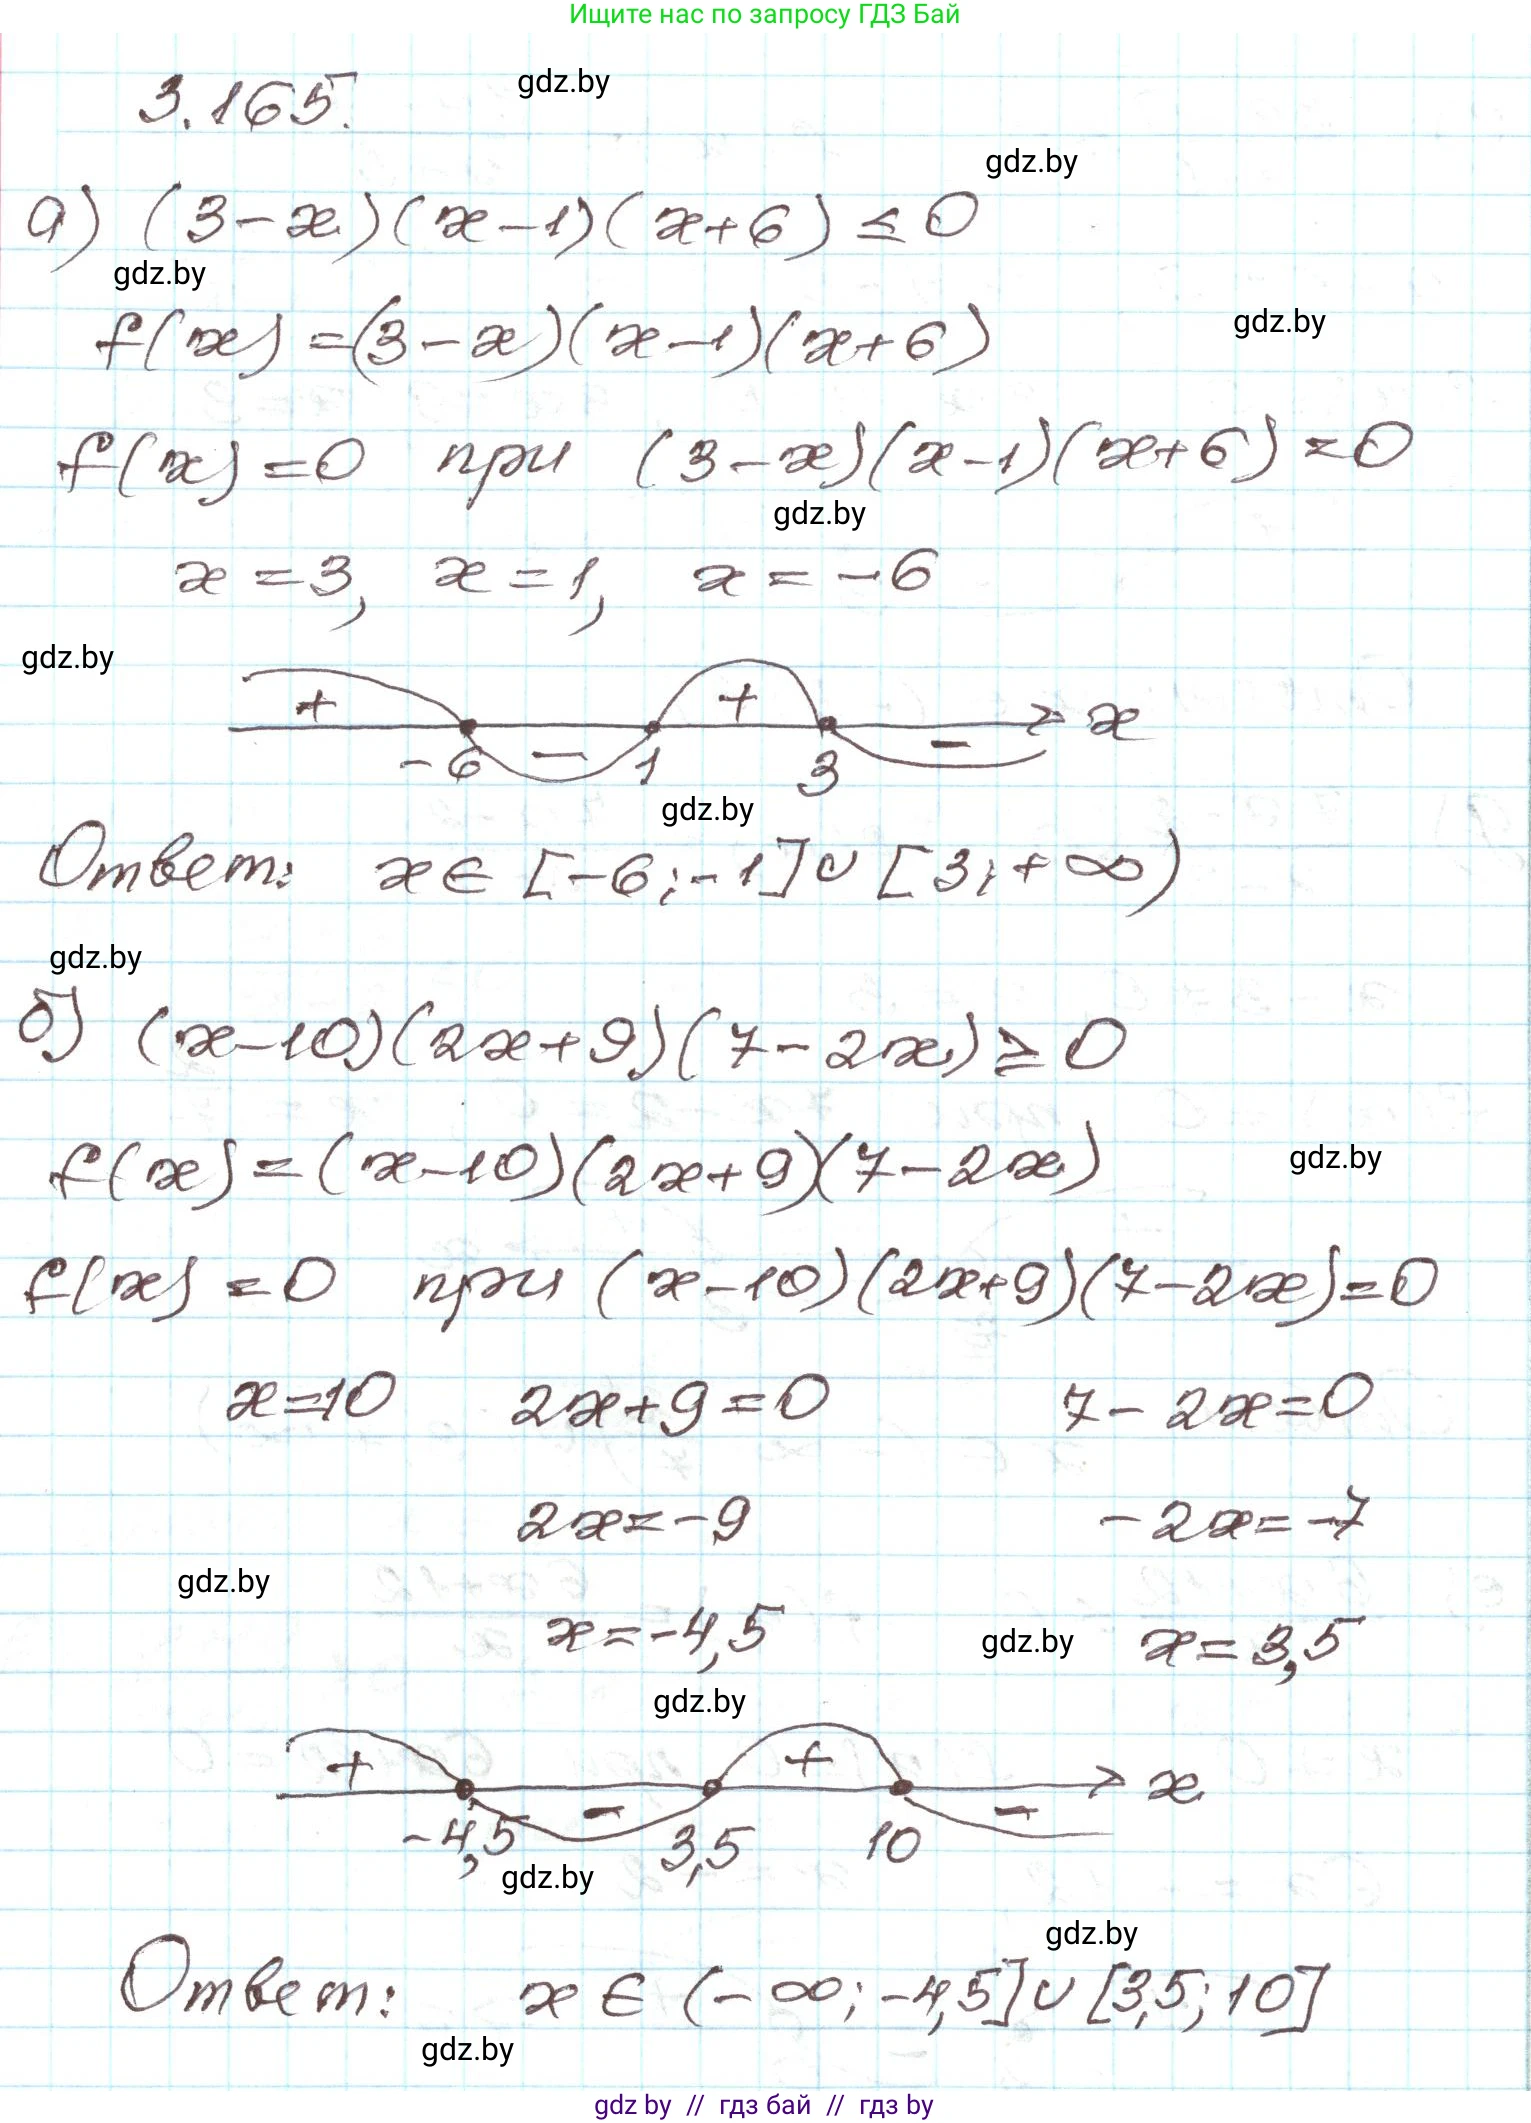 Ищите нас по запросу ГДЗ Бай
3.165.
gdz.by
gdz.by
а) (3-x)(x-1)(x+6) ≤ 0
gdz.by
f(x) = (3-x)(x-1)(x+6)
gdz.by
f(x) = 0 при (3-x)(x-1)(x+6) = 0
gdz.by
x = 3, x = 1, x = -6
gdz.by
+ - + - x
-6 1 3
gdz.by
Ответ: x ∈ [-6; -1] ∪ [3; +∞)
gdz.by
б) (x-10)(2x+9)(7-2x) ≥ 0
f(x) = (x-10)(2x+9)(7-2x)
gdz.by
f(x) = 0 при (x-10)(2x+9)(7-2x) = 0
x=10 2x+9=0 7-2x=0
2x=-9 -2x=-7
gdz.by
x=-4,5 gdz.by x=3,5
gdz.by
+ - + - x
-4,5 3,5 10
gdz.by
gdz.by
Ответ: x ∈ (-∞; -4,5] ∪ [3,5; 10]
gdz.by
gdz by // гдз бай // гдз by